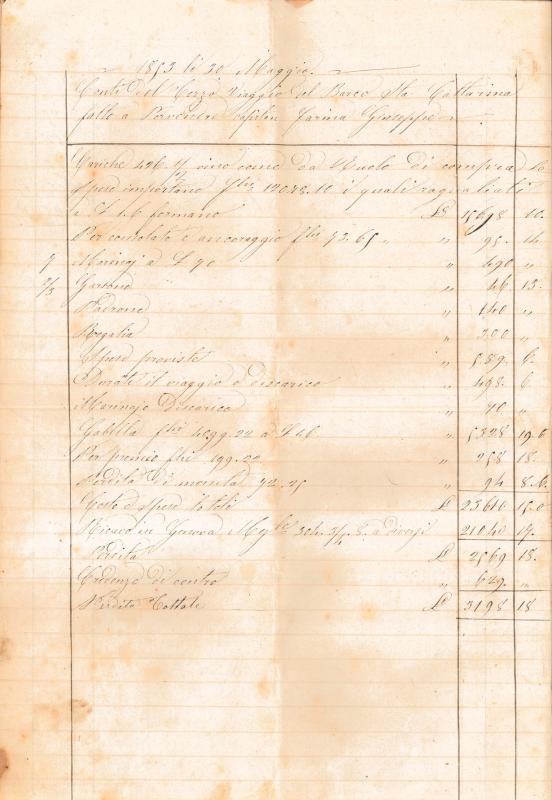 1853 li 30 Maggio
Conti del Terzo Viaggio del Barco Sta Cattarina
fatto a Porvendre capitan Farina Giuseppe
Cariche 426 1/2 vino come da Ruolo di compra
spese importano f.chi 12078.10 i quali ragualiati
a £ 1.6 formano £ 15698 10.
Per consolato e ancoraggio f.chi 73.65 „ „ 95. 14
7 Marinaj a £ 70 „ 490 „
2/3 Garzone „ 46 13.
Padrone „ 140 „
Regalia „ 300 „
Spese proviste „ 589. 6.
Durate il viaggio e discarico „ 498. 6
Marinajo Discarico „ 70 „
Gabella f.chi 4099.22 a £ 1.6 „ 5328 19.6
Per premio f.chi 199.22 „ 258 18.
Perdita di moneta 72.25 „ 94 8.6.
Costo e spese totoli £ 23610 15.0
Ricavo in Genova 304. 3/4 8. a diversi 21040 17.
Perdita £ 2569 18.
Credenze di contro „ 629. „
Perdita Tottale £ 3198 18